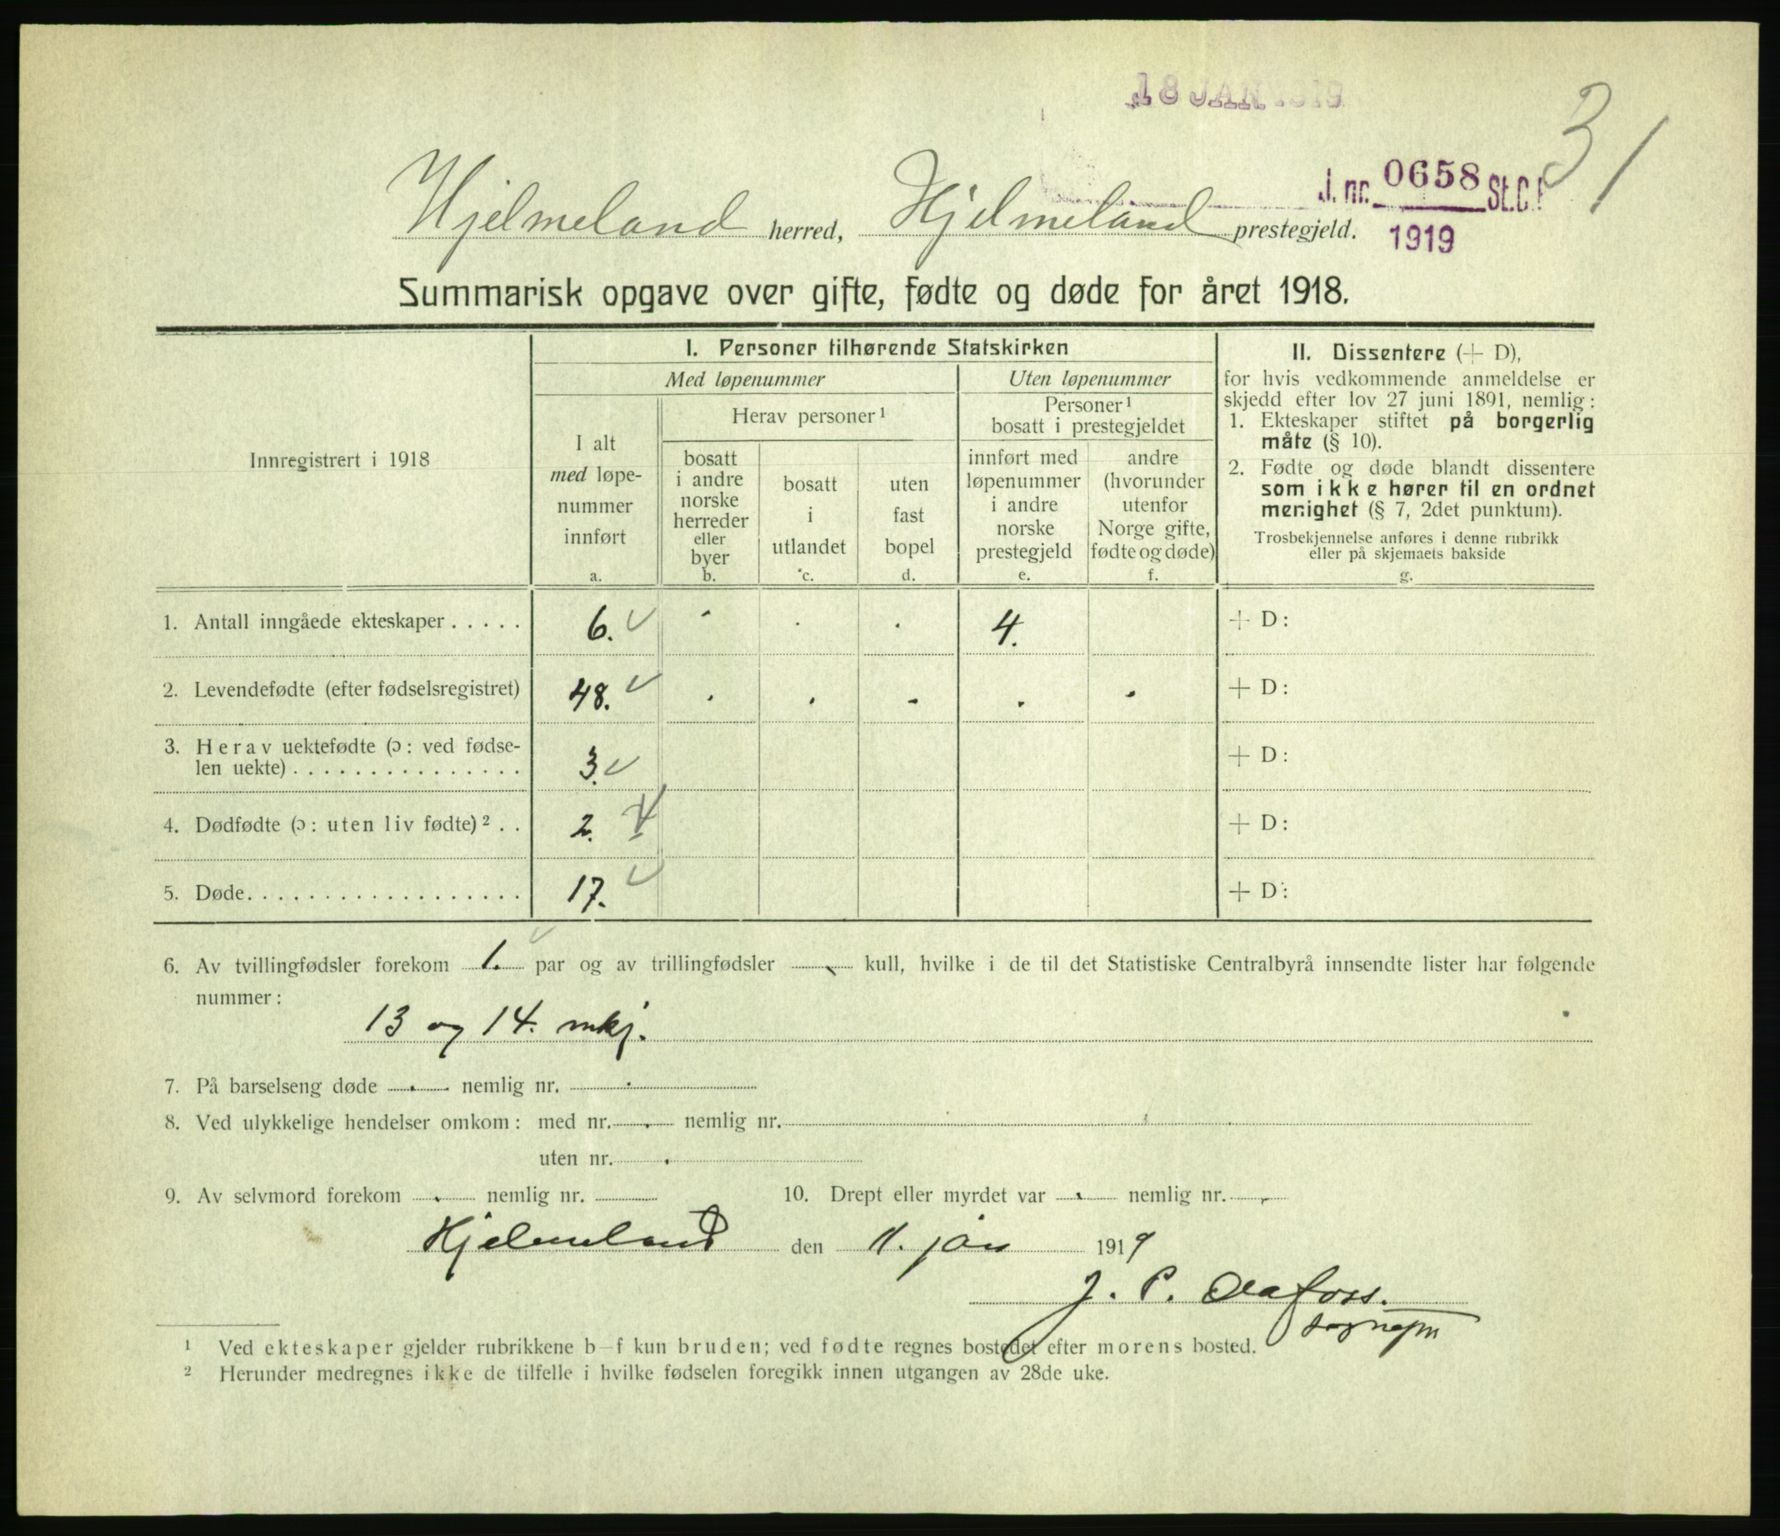 18 JAN 1919
31
J. nr. 0658 St.C.
1919
Hjelmeland herred, Hjelmeland prestegjeld.
Summarisk opgave over gifte, fødte og døde for året 1918.
Innregistrert i 1918
I. Personer tilhørende Statskirken
Med løpenummer
I alt
med løpe-
nummer
innført
a.
Herav personer ¹
bosatt
i andre
norske
herreder
eller
byer
b.
bosatt
i
utlandet
c.
uten
fast
bopel
d.
Uten løpenummer
Personer ¹
bosatt i prestegjeldet
innført med
løpenummer
i andre
norske
prestegjeld
e.
andre
(hvorunder
utenfor
Norge gifte,
fødte og døde)
f.
II. Dissentere (+ D),
for hvis vedkommende anmeldelse er
skjedd efter lov 27 juni 1891, nemlig:
1. Ekteskaper stiftet på borgerlig
måte (§ 10).
2. Fødte og døde blandt dissentere
som ikke hører til en ordnet
menighet (§ 7, 2det punktum).
Trosbekjennelse anføres i denne rubrikk
eller på skjemaets bakside
g.
1. Antall inngåede ekteskaper ..... 6. 4. + D:
2. Levendefødte (efter fødselsregistret) 48. + D:
3. Herav uektefødte (ɔ: ved fødse-
len uekte) ............... 3. + D:
4. Dødfødte (ɔ: uten liv fødte) ² .. 2. + D:
5. Døde .................. 17. + D:
6. Av tvillingfødsler forekom 1. par og av trillingfødsler kull, hvilke i de til det Statistiske Centralbyrå innsendte lister har følgende
nummer:
13 og 14. mkj.
7. På barselseng døde nemlig nr.
8. Ved ulykkelige hendelser omkom: med nr. nemlig nr.
uten nr.
9. Av selvmord forekom nemlig nr. 10. Drept eller myrdet var nemlig nr.
Hjelmeland den 11. jan 1919
J. P. Olafoss.
sognepr
¹ Ved ekteskaper gjelder rubrikkene b–f kun bruden; ved fødte regnes bostedet efter morens bosted.
² Herunder medregnes ikke de tilfelle i hvilke fødselen foregikk innen utgangen av 28de uke.